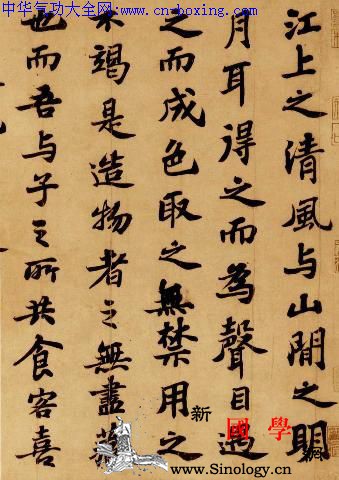 中华气功大全网. www.cn-boxing.com
江上之清風与山間之明
月耳得之而為聲目遇
之而成色取之無禁用之
不竭是造物者之無盡藏
也而吾与子之所共食客喜
新
國學網
www.Sinology.cn